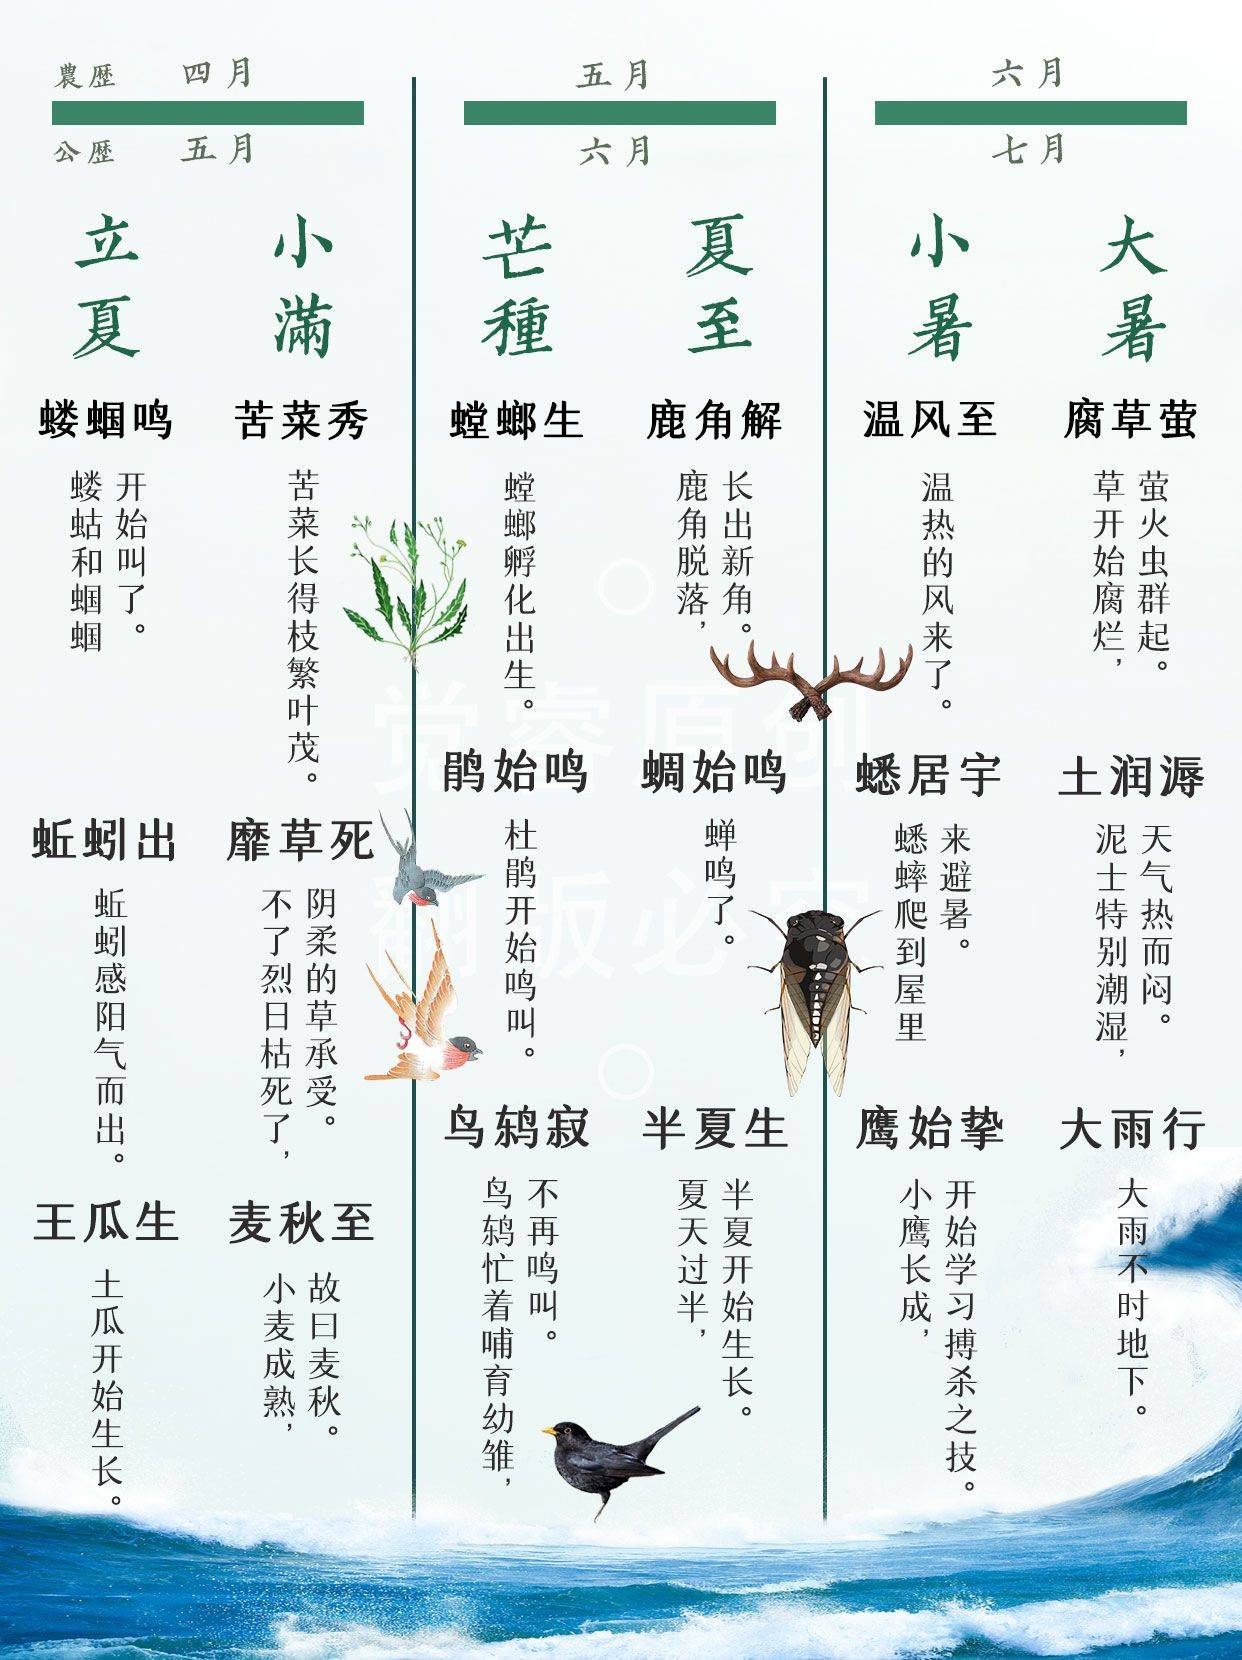 農歴 四月
公歴 五月
立夏
蝼蝈鸣
蝼蛄和蝈蝈
开始叫了。
蚯蚓出
蚯蚓感阳气而出。
王瓜生
土瓜开始生长。
小滿
苦菜秀
苦菜长得枝繁叶茂。
靡草死
不了烈日枯死了,
阴柔的草承受。
麦秋至
小麦成熟,
故曰麦秋。
五月
六月
芒種
螳螂生
螳螂孵化出生。
鹃始鸣
杜鹃开始鸣叫。
鸟鸫寂
鸟鸫忙着哺育幼雏,
不再鸣叫。
夏至
鹿角解
鹿角脱落,
长出新角。
蜩始鸣
蝉鸣了。
半夏生
夏天过半,
半夏开始生长。
六月
七月
小暑
温风至
温热的风来了。
蟋居宇
蟋蟀爬到屋里
来避暑。
鹰始挚
小鹰长成,
开始学习搏杀之技。
大暑
腐草萤
草开始腐烂,
萤火虫群起。
土润溽
泥士特别潮湿,
天气热而闷。
大雨行
大雨不时地下。
觉睿原创
翻版必究